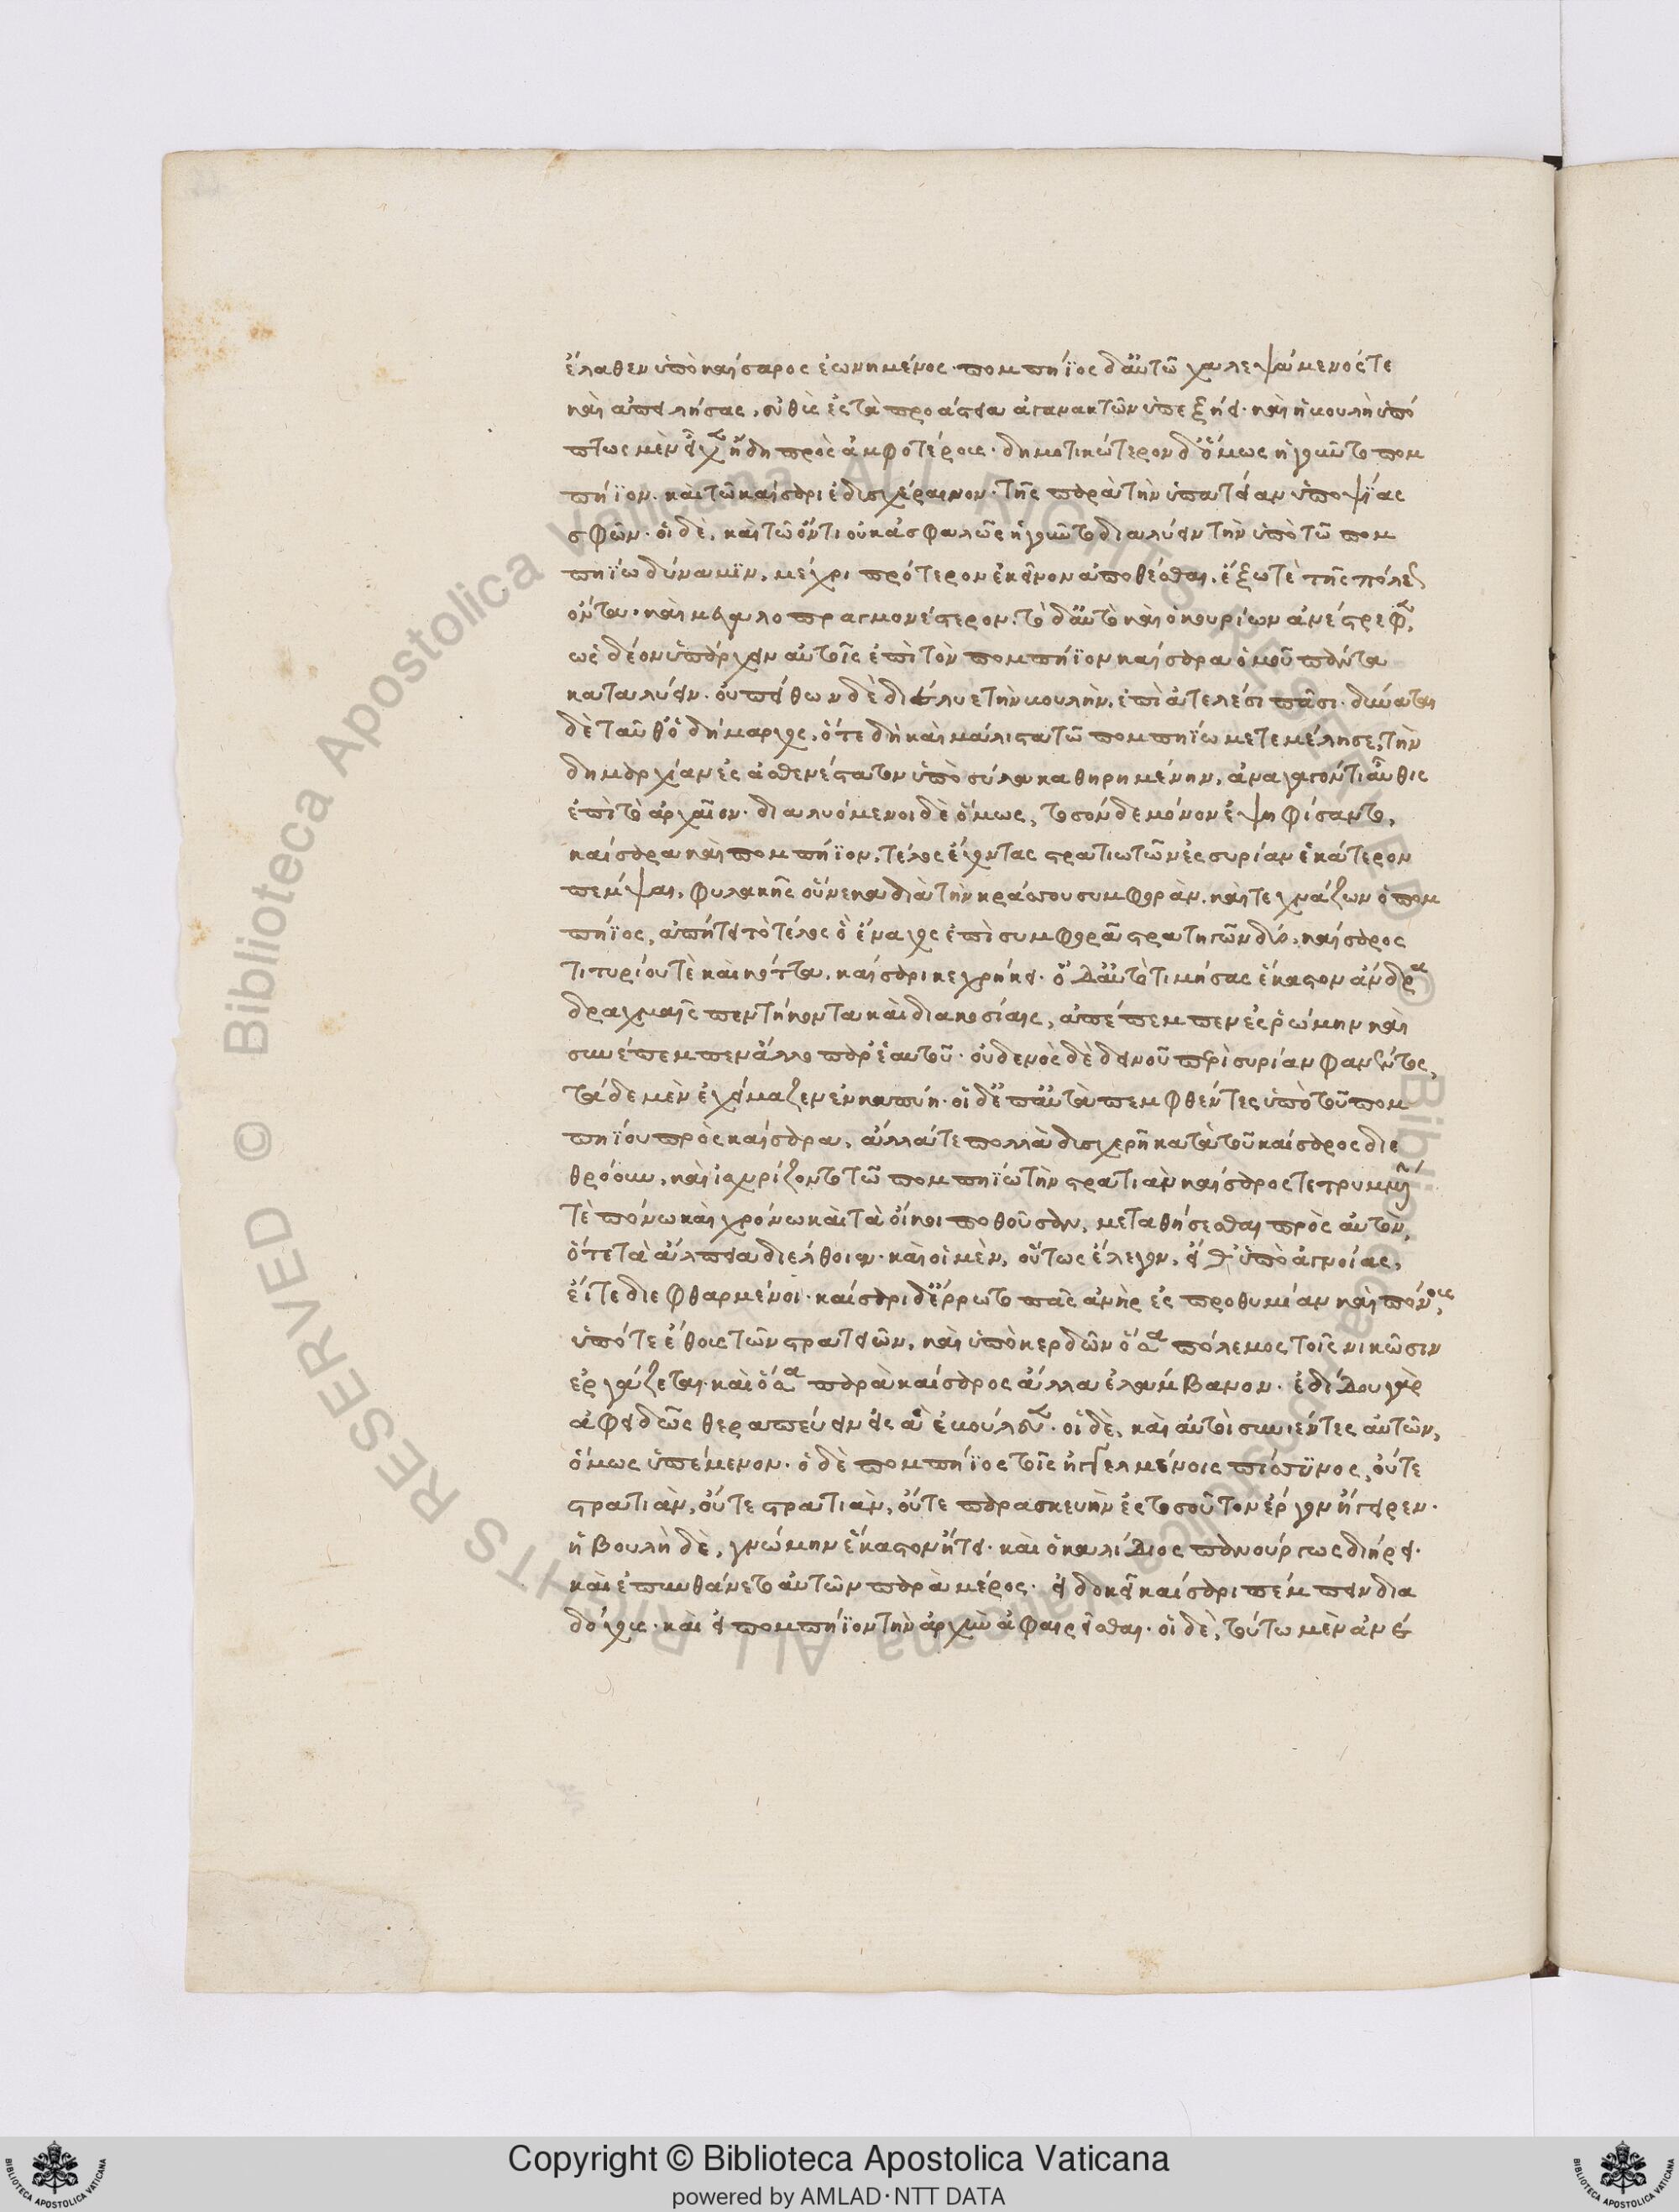 ἔλαθεν ὑπὸ καίσαρος ἐωνημένος· πομπήϊος δ' αὐτῶ χαλεψάμενός τε
καὶ ἀπειλήσας, εὐθὺς ἐς τὰ προάστεια ἀγανακτῶν ὑπεξήει· καὶ ἡ βουλὴ ὑπό
πτως μὲν εἶχεν ἤδη πρὸς ἀμφοτέρους· δημοτικώτερον δ' ὅμως ἡγοῦντο πομ
πήϊον· καὶ τῶ καίσαρι ἐδυσχέραινον· τῆς παρὰ τὴν ὑπατείαν ὑποψίας
σφῶν· οἱ δὲ, καὶ τῶ ὄντι οὐκ ἀσφαλῶς ἡγοῦντο διαλύειν τὴν ὑπὸ τῶ πομ
πηΐω δύναμιν, μέχρι πρότερον ἐκεῖνον ἀποθέσθαι, ἔξω τὲ τῆς πόλεως
ὄντα· καὶ μεγαλοπραγμονέστερον· τὸ δ' αὐτὸ καὶ ὁ κουρίων ἀνέστρεφεν,
ὡς δέον ὑπάρχειν αὐτοῖς ἐπὶ τὸν πομπήϊον καίσαρα ὁμοῦ πάντα
καταλύειν· οὐ πείθων δὲ διέλυε τὴν βουλὴν, ἐπὶ ἀτελέσι πᾶσι· δύναται
δὲ ταῦθ' ὁ δήμαρχος, ὅτε δὴ καὶ μάλιστα τῶ πομπηΐω μετεμέλησε, τὴν
δημαρχίαν ἐς ἀσθενέστατον ὑπὸ σύλλα καθηρημένην, ἀναγαγόντι αὖθις
ἐπὶ τὸ ἀρχαῖον· διαλυόμενοι δὲ ὅμως, τοσόνδε μόνον ἐψηφίσαντο,
καίσαρα καὶ πομπήϊον, τέλος ἓν ὄντας στρατιωτῶν ἐς συρίαν ἑκάτερον
πέμψαι, φυλακῆς οὕνεκα διὰ τὴν κράσσου συμφορὰν, καὶ τεχνάζων ὁ πομ
πήϊος, ἀπήτει τὸ τέλος ὃ ἔναγχος ἐπὶ συμφορᾶ στρατηγῶν δύο, καίσαρος
τιτυρίου τὲ καὶ κόττα, καίσαρι κεχρήκει· ὃ δ' αὐτὸ τιμήσας ἕκαστον ἄνδρα
δραχμαῖς πεντήκοντα καὶ διακοσίαις, ἀπέπεμπεν ἐς ῥώμην καὶ
συνέπεμπεν ἄλλο παρ' ἑαυτοῦ· οὐδενὸς δὲ δεινοῦ περὶ συρίαν φανέντος,
τάδε μὲν ἐχείμαζεν ἐν καπύη· οἱ δ' ἐπ' αὐτὰ πεμφθέντες ὑπὸ τοῦ πομ
πηΐου πρὸς καίσαρα, ἄλλα τε πολλὰ δυσχερῆ κατὰ τοῦ καίσαρος διε
θρόουν, καὶ ἰσχυρίζοντο τῶ πομπηΐω τὴν στρατιὰν καίσαρος τετρυμένην
τὲ πόνω καὶ χρόνω καὶ τὰ οἴκοι ποθοῦσαν, μεταθήσεσθαι πρὸς αὐτὸν,
ὅτε τὰ ἄλπεια διέλθοιεν· καὶ οἱ μὲν, οὕτως ἔλεγον, εἴθ' ὑπὸ ἀγνοίας,
εἴτε διεφθαρμένοι· καίσαρι δ' ἔρρωτο πᾶς ἀνὴρ ἐς προθυμίαν καὶ πόνους,
ὑπό τε ἔθους τῶν στρατειῶν, καὶ ὑπὸ κερδῶν ὅσα πόλεμος τοῖς νικῶσιν
ἐργάζεται· καὶ ὅσα παρὰ καίσαρος ἄλλα ἐλάμβανον· ἐδίδου γὰρ
ἀφειδῶς θεραπεύων ἐς ἃ ἐβούλευεν· οἱ δὲ, καὶ αὐτοὶ συνιέντες αὐτῶν,
ὅμως ὑπέμενον· ὁ δὲ πομπήϊος τοῖς ἠγγελμένοις πίσυνος, οὔτε
στρατιὰν, οὔτε στρατιὰν, οὔτε παρασκευὴν ἐς τοσοῦτον ἔργον ἤγειρεν·
ἡ βουλὴ δὲ, γνώμην ἕκαστον ἤτει· καὶ ὁ κλαύδιος πανούργως διήρει·
καὶ ἐπυνθάνετο αὐτῶν παρὰ μέρος· εἰ δοκεῖ καίσαρι πέμπειν δια
δόχους· καὶ εἰ πομπήϊον τὴν ἀρχὴν ἀφαιρεῖσθαι· οἱ δὲ, τούτω μὲν ἀνέ